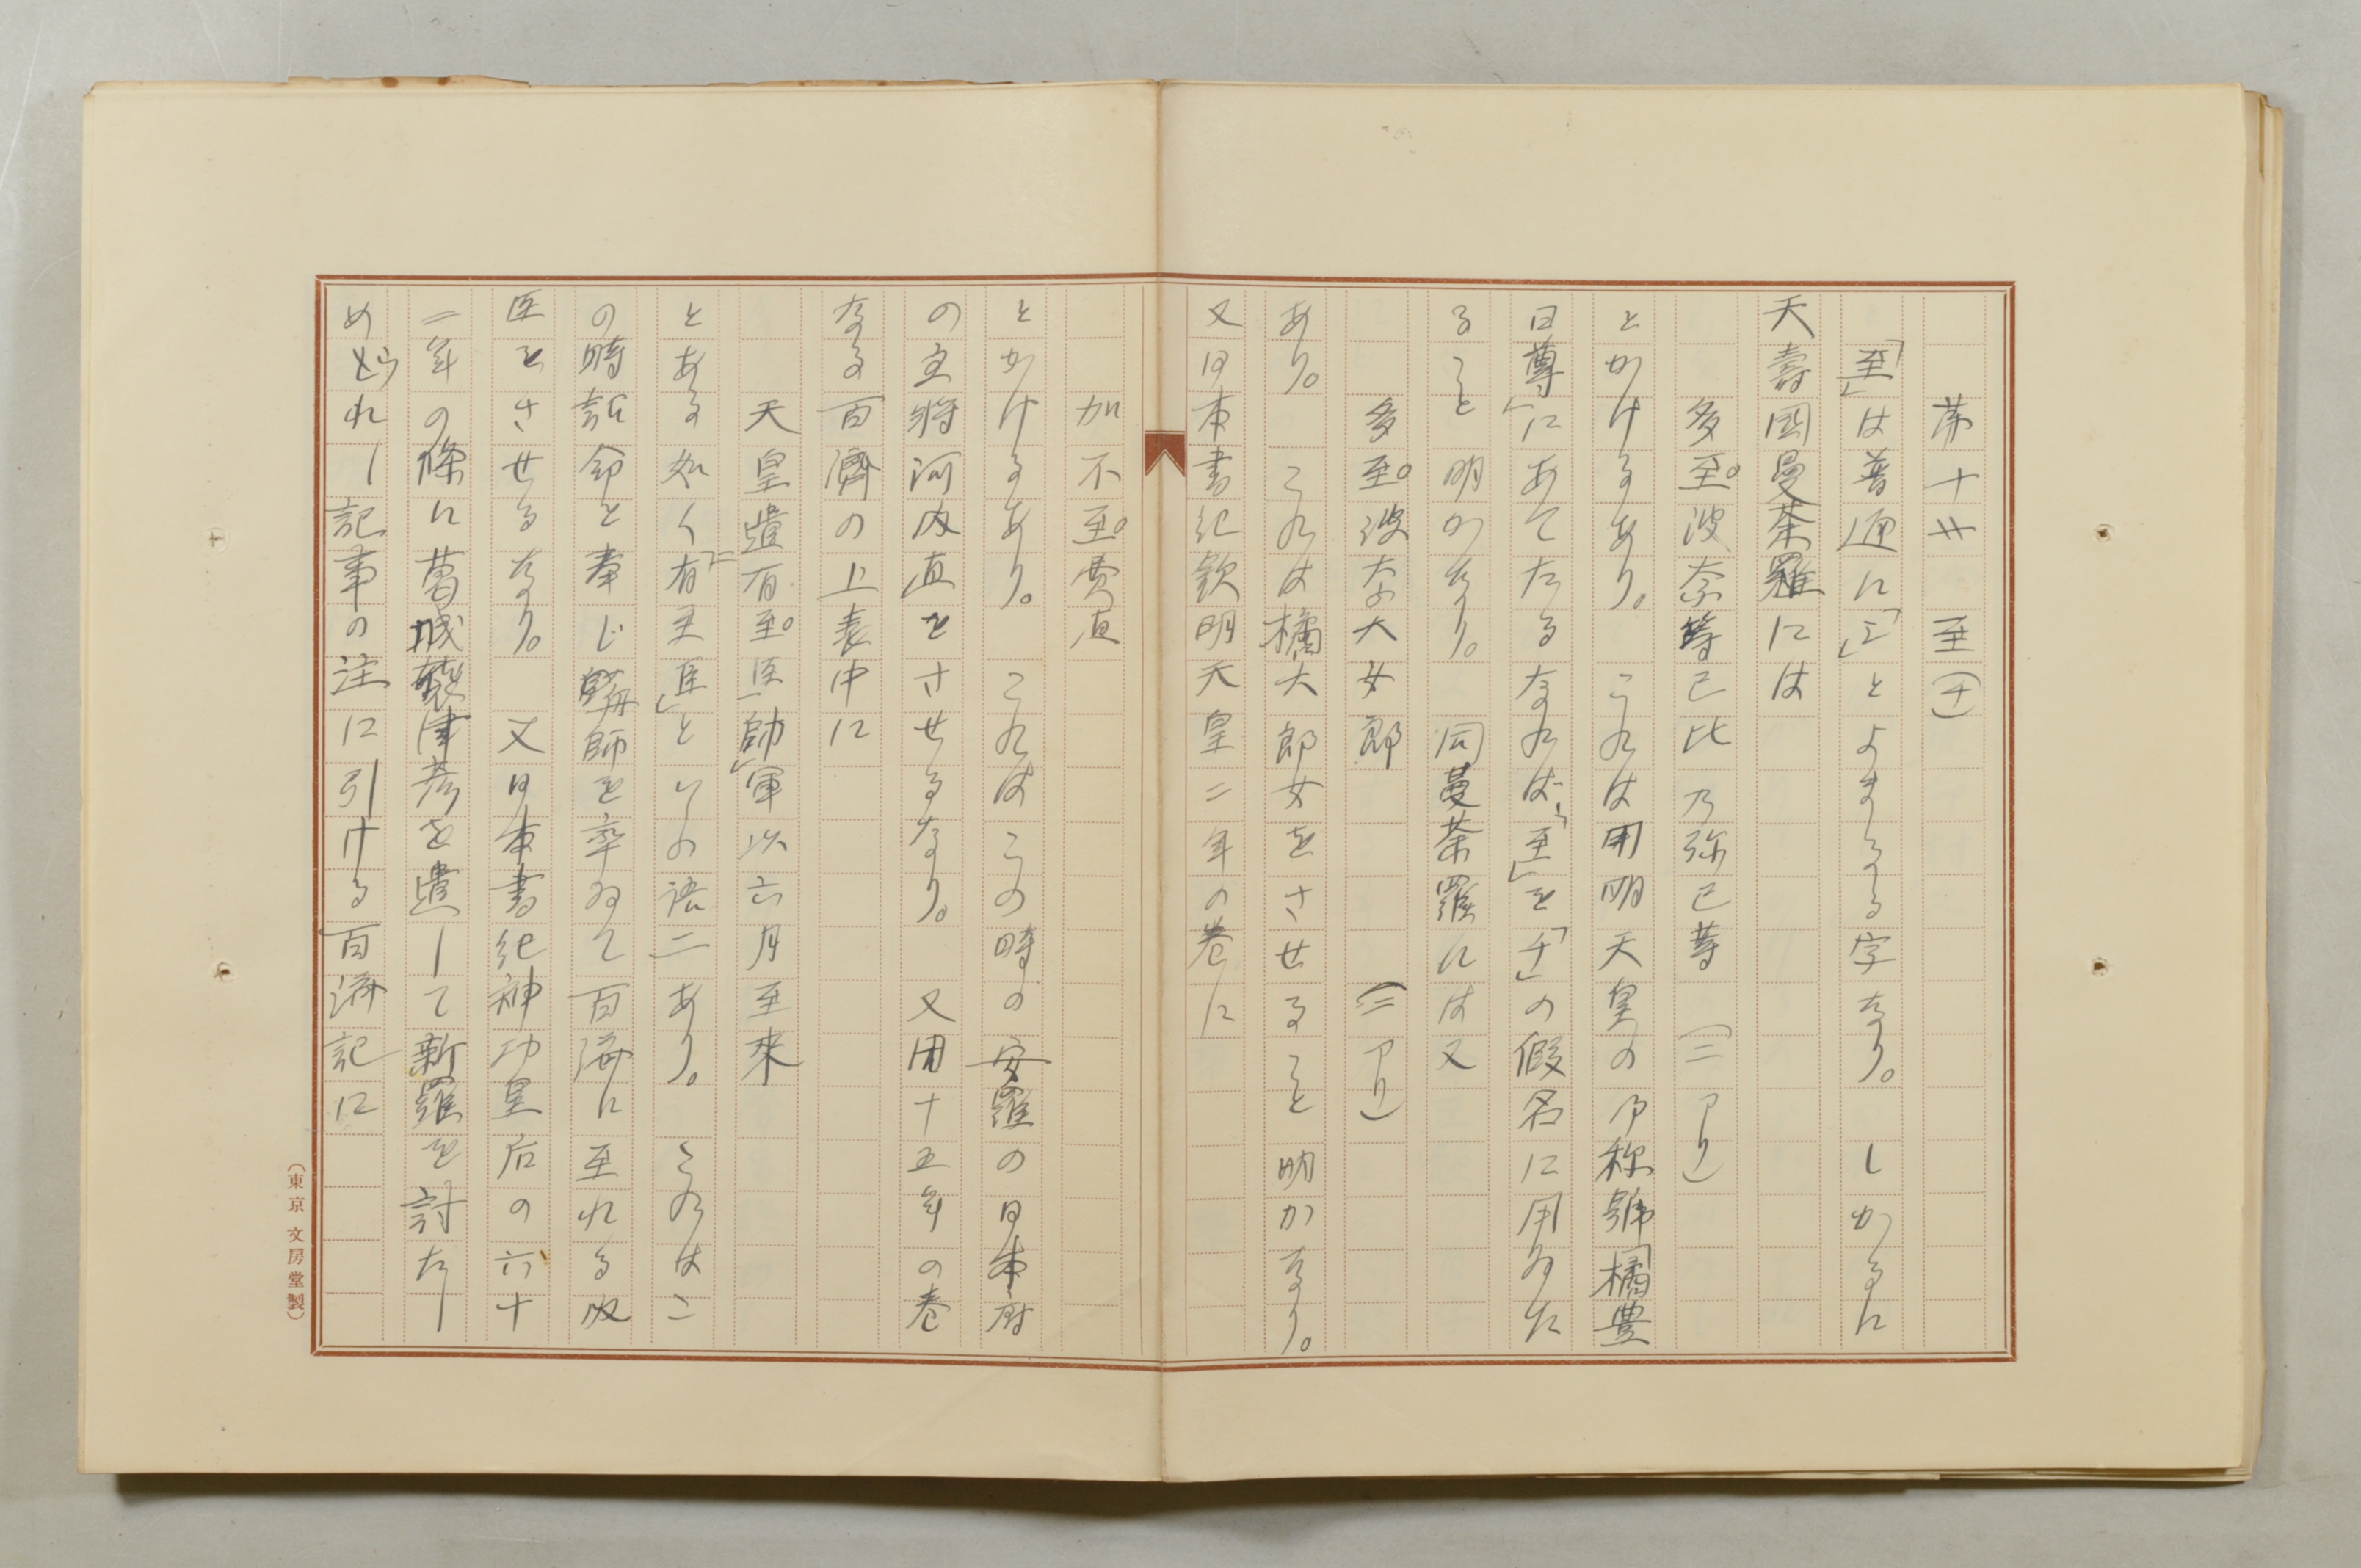 第十廿　至(チ)
「至」は普通に「シ」とよまるる字なり。しかるに
天壽国曼荼羅には
多至。波奈等已比乃弥已等　(二アリ)
とかけるあり。これは用明天皇の御称號橘豊
日尊」にあてたるなれば、「至」を「チ」の假名に用ゐた
ること明かなり。同曼荼羅には又
多至。波奈大女郎　(二アリ)
あり。これは橘大郎女をさせること明かなり。
又日本書紀欽明天皇二年の巻に
加不至。費直
とかけるあり。これはこの時の安羅の日本府
の主将河内直をさせるなり。又同十五年の巻
なる百濟の上表中に
天皇遣有至。臣「帥」軍以六月至来
とある如く有至臣」といふ語二あり。これはこ
の時詔命を奉じ舟師を率ゐて百済に至れる内
臣をさせるなり。又日本書紀神功皇后の六十
二年の條に葛城襲津彦を遣して新羅を討たし
められし記事の注に引ける百済記に
(東京 文房堂製)